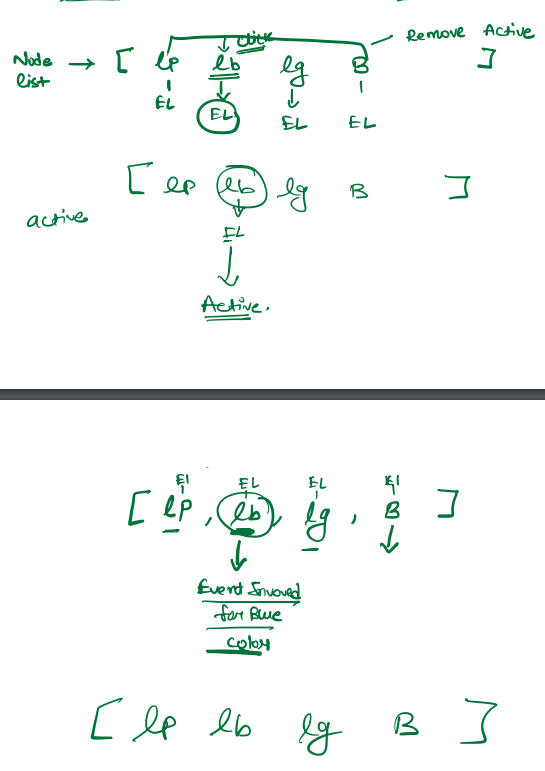 Remove Active
click
Node list → [ lp lb lg B ]
EL EL EL EL
[ lp lb lg B ]
active
EL
Active.
El EL EL El
[ lp , lb , lg , B ]
Event Invoved
for Blue
color
[ lp lb lg B ]